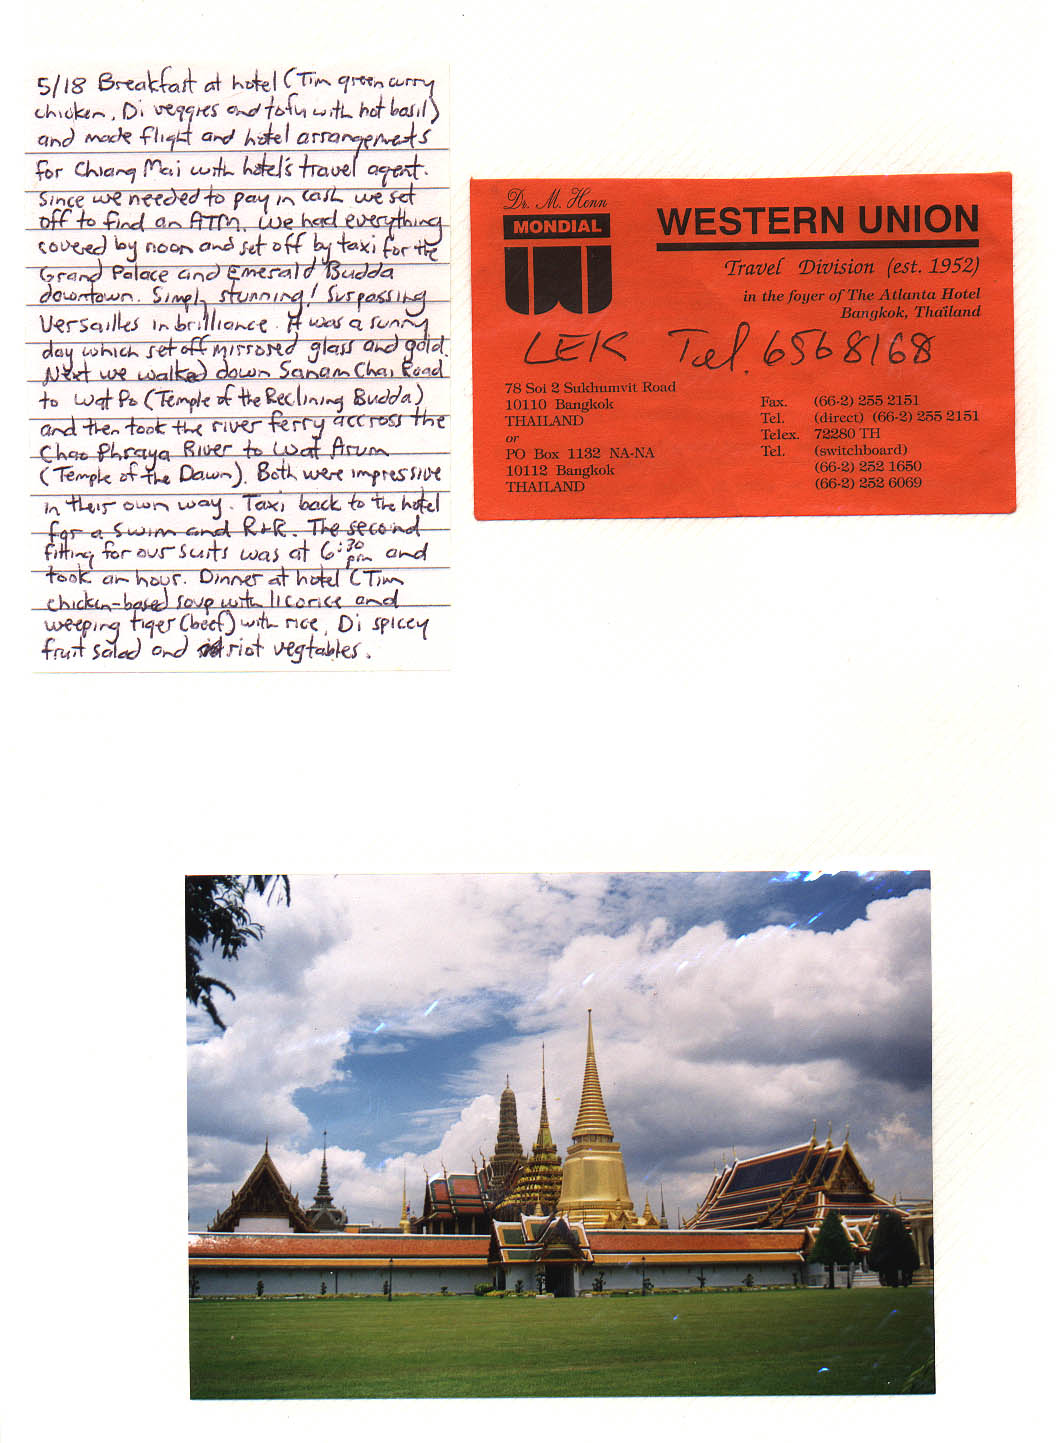 5/18 Breakfast at hotel (Tim green curry
chicken, Di veggies and tofu with hot basil)
and made flight and hotel arrangements
for Chiang Mai with hotel's travel agent.
Since we needed to pay in cash we set
off to find an ATM. We had everything
covered by noon and set off by taxi for the
Grand Palace and Emerald Budda
downtown. Simply stunning! Suspassing
Versailles in brilliance. It was a sunny
day which set off mirrored glass and gold.
Next we walked down Sanam Chai Road
to Wat Po (Temple of the Reclining Budda)
and then took the river ferry accross the
Chao Phraya River to Wat Arum
(Temple of the Dawn). Both were impressive
in their own way. Taxi back to the hotel
for a swim and R+R. The second
fitting for our suits was at 6:30 pm and
took an hour. Dinner at hotel (Tim
chicken-based soup with licorice and
weeping tiger (beef) with rice, Di spicey
fruit salad and riot vegtables.
Dr. M. Henn
MONDIAL
WESTERN UNION
Travel Division (est. 1952)
in the foyer of The Atlanta Hotel
Bangkok, Thailand
LEK Tel. 6568168
78 Soi 2 Sukhumvit Road
10110 Bangkok
THAILAND
or
PO Box 1132 NA-NA
10112 Bangkok
THAILAND
Fax. (66-2) 255 2151
Tel. (direct) (66-2) 255 2151
Telex. 72280 TH
Tel. (switchboard)
(66-2) 252 1650
(66-2) 252 6069